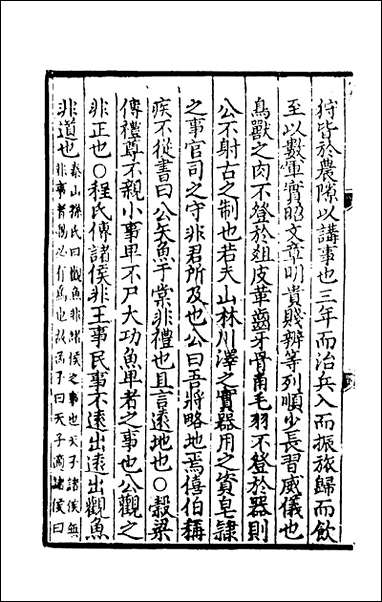 狩皆於農隙以講事也三年而治兵入而振旅歸而飲
至以數軍實昭文章明貴賤辨等列順少長習威儀也
鳥獸之肉不登於俎皮革齒牙骨角毛羽不登於器則
公不射古之制也若夫山林川澤之實器用之資皂隷
之事官司之守非君所及也公曰吾將略地焉僖伯稱
疾不從書曰公矢魚于棠非禮也且言遠地也○穀梁
傳禮尊不親小事卑不尸大功魚卑者之事也公觀之
非正也○程氏傳諸侯非王事民事不遠出遠出觀魚
非道也
泰山孫氏曰觀魚非諸侯之事也天子諸侯無
非事者動必有為也故孟子曰天子適諸侯曰